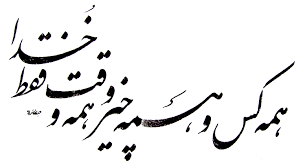 همه کس و همه چیز و همه وقت فقط خدا